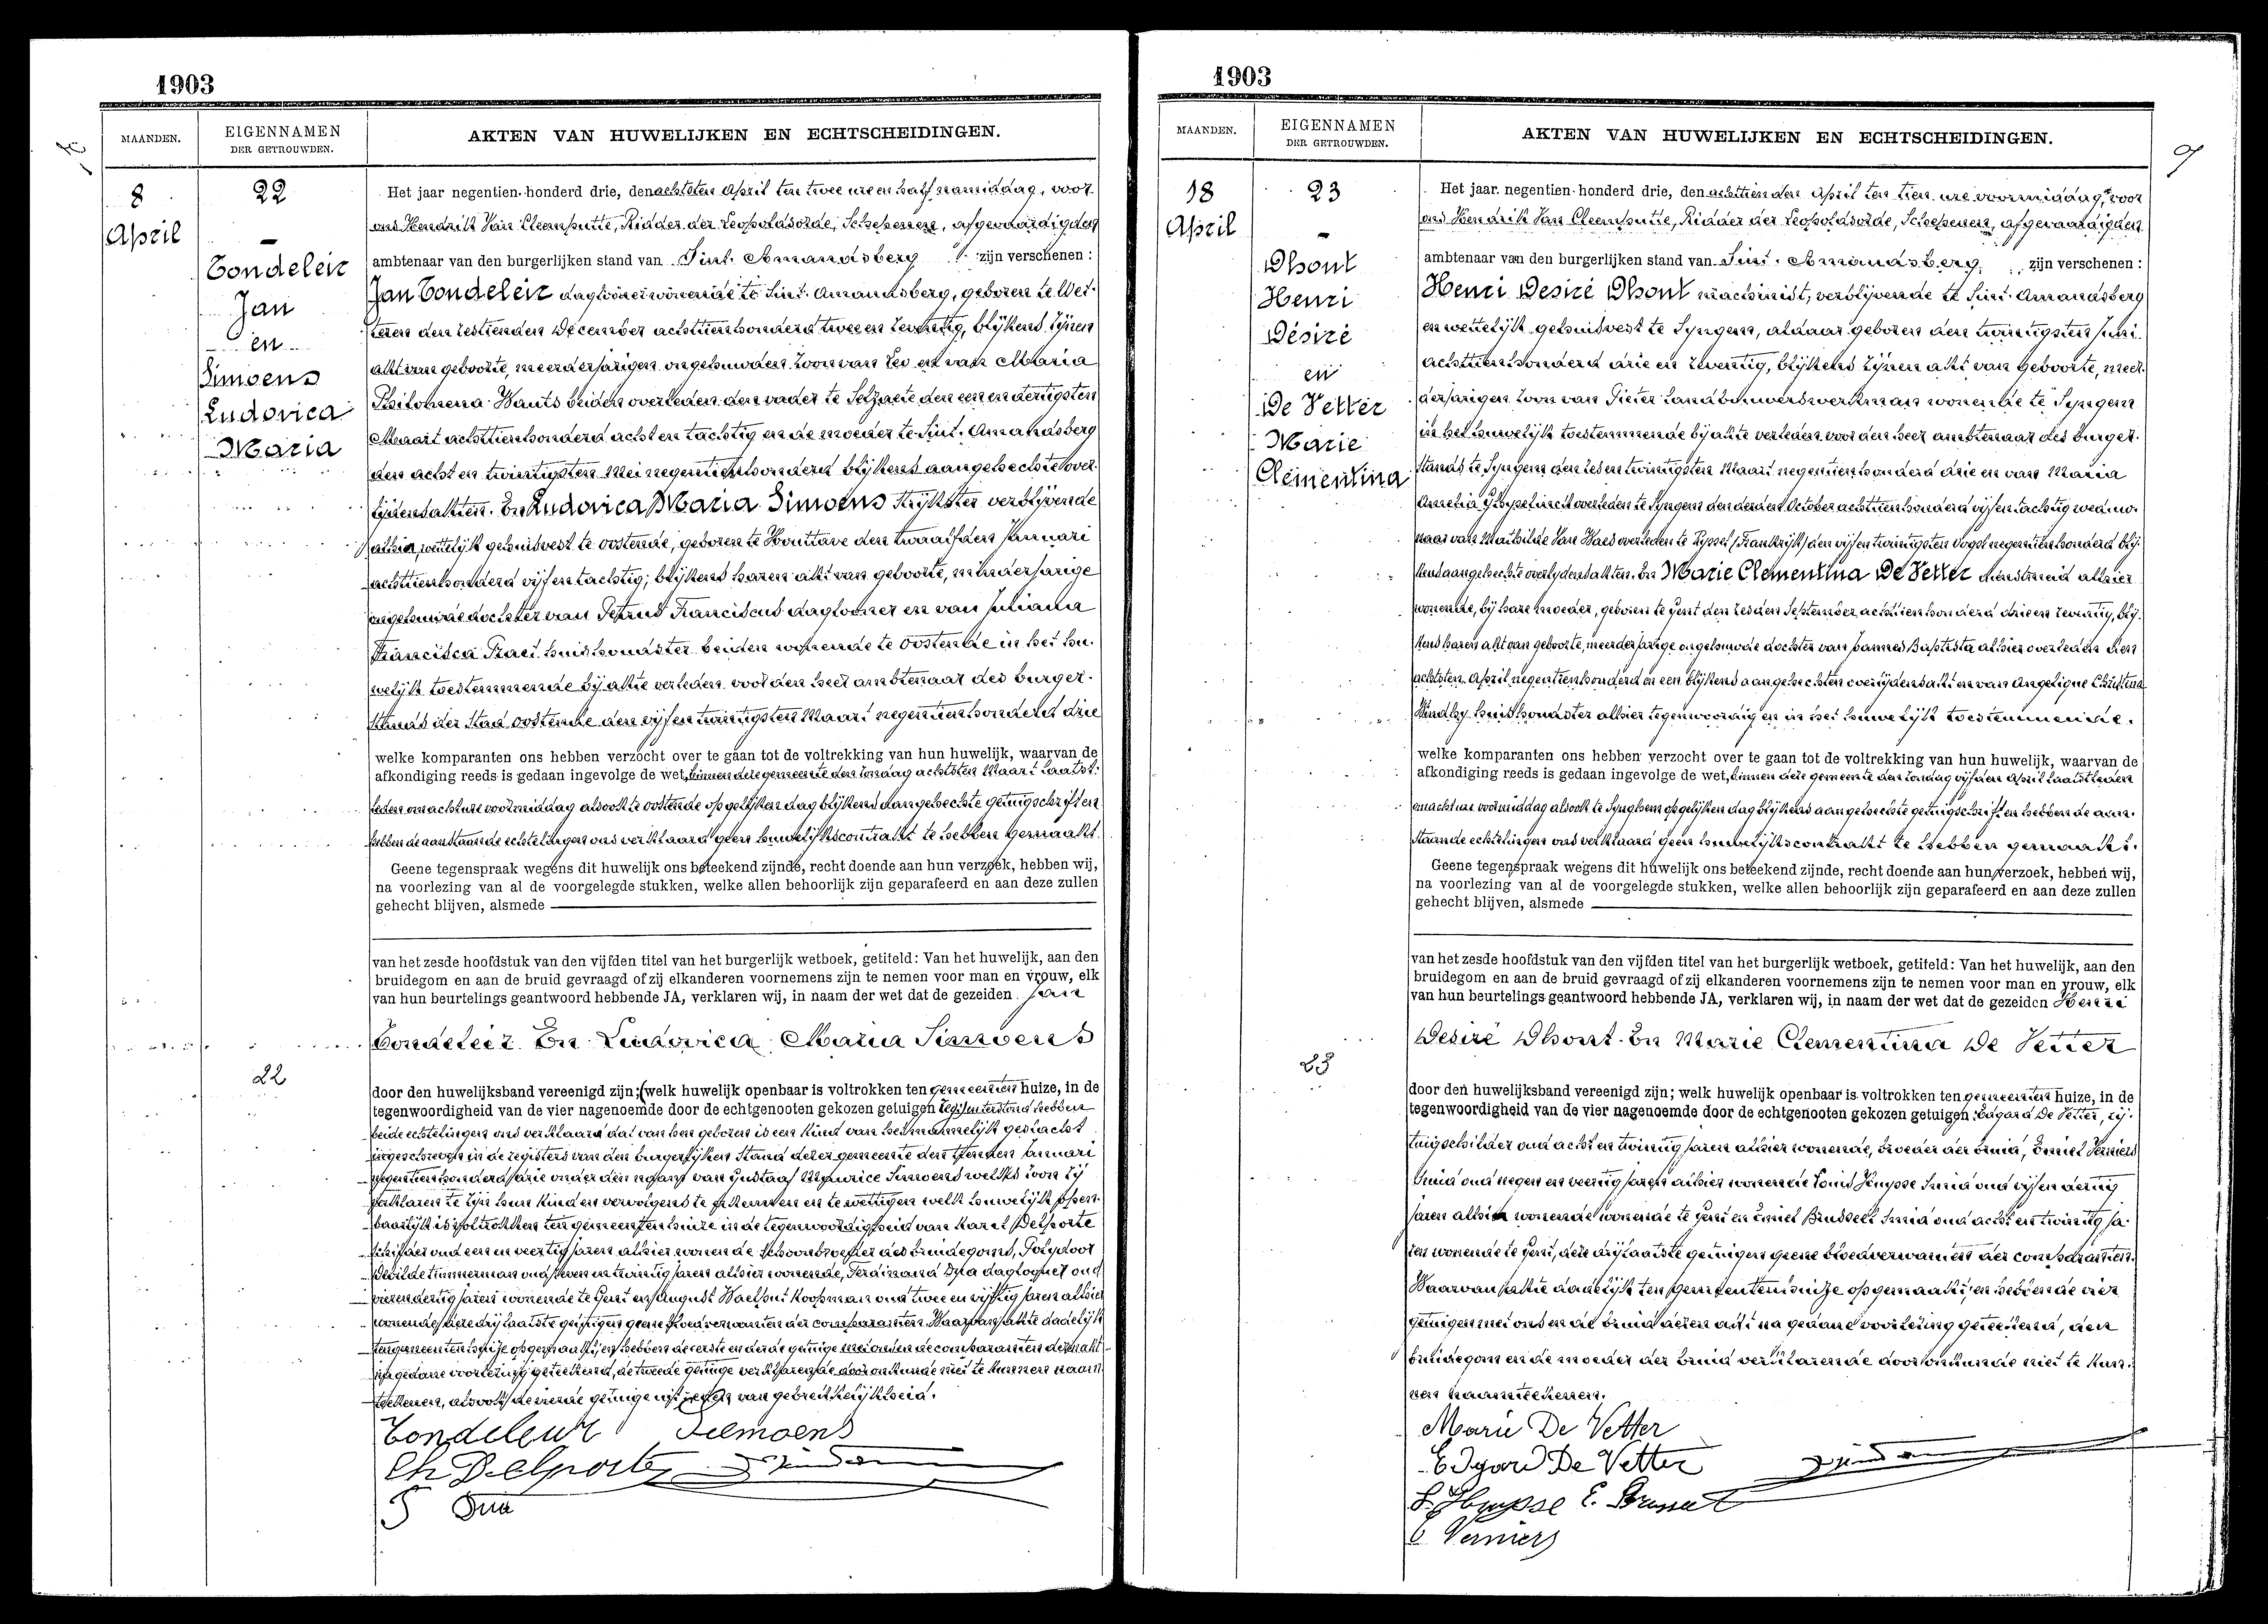 1903
MAANDEN.
EIGENNAMEN
DER GETROUWDEN.
AKTEN VAN HUWELIJKEN EN ECHTSCHEIDINGEN.
8
April
22
Tondeleir
Jan
en
Simoens
Ludovica
Maria
Het jaar negentien-honderd drie, den achtsten April ten twee ure en half namiddag, voor
ons Hendrik Van Cleemputte, Ridder der Leopoldsorde, Schepenen, afgevaardigden
ambtenaar van den burgerlijken stand van Sint. Amandsberg zijn verschenen:
Jan Tondeleir daglooner wonende te Sint. Amandsberg, geboren te Wet-
teren den zestienden December achttienhonderd twee en zeventig, blijkens zijnen
akt van geboorte, meerderjarigen ongehuwden zoon van Leo en van Maria
Philomena Wauts beiden overleden den vader te Selzaete den een en dertigsten
Maart achttienhonderd acht en tachtig en de moeder te Sint. Amandsberg
den acht en twintigsten Mei negentienhonderd blijkens aangehechte over-
lijdensakten. En Ludovica Maria Simoens strijkster verblijvende
alhier, wettelijk gehuisvest te Oostende, geboren te Houttave den twaalfden Januari
achttienhonderd vijf en tachtig; blijkens haren akt van geboorte, minderjarige
ongehuwde dochter van Petrus Franciscus daglooner en van Juliana
Francisca Praet huishoudster beiden wonende te Oostende in het hu-
welijk toestemmende bij akte verleden voor den heer ambtenaar des burger-
stands der Stad Oostende den vijf en twintigsten Maart negentienhonderd drie
welke komparanten ons hebben verzocht over te gaan tot de voltrekking van hun huwelijk, waarvan de
afkondiging reeds is gedaan ingevolge de wet, binnen deze gemeente den zondag achtsten Maart laatst-
leden om acht ure voormiddag alsook te Oostende op gelijken dag blijkens aangehechte getuigschriften
hebben de aanstaande echtelingen ons verklaard geen huwelijkscontrakt te hebben gemaakt.
Geene tegenspraak wegens dit huwelijk ons beteekend zijnde, recht doende aan hun verzoek, hebben wij,
na voorlezing van al de voorgelegde stukken, welke allen behoorlijk zijn geparafeerd en aan deze zullen
gehecht blijven, alsmede
van het zesde hoofdstuk van den vijfden titel van het burgerlijk wetboek, getiteld: Van het huwelijk, aan den
bruidegom en aan de bruid gevraagd of zij elkanderen voornemens zijn te nemen voor man en vrouw, elk
van hun beurtelings geantwoord hebbende JA, verklaren wij, in naam der wet dat de gezeiden Jan
Tondeleir En Ludovica Maria Simoens
22
door den huwelijksband vereenigd zijn; (welk huwelijk openbaar is voltrokken ten gemeenten huize, in de
tegenwoordigheid van de vier nagenoemde door de echtgenooten gekozen getuigen terstond hebben
beide echtelingen ons verklaard dat van hen geboren is een kind van het mannelijk geslacht
ingeschreven in de registers van den burgerlijken Stand dezer gemeente den Januari
negentienhonderd drie onder den naam van Gustaaf Maurice Simoens welks zoon zij
verklaren te zijn hun kind en vervolgens te erkennen en te wettigen welk huwelijk open-
baarlijk is voltrokken ten gemeenten huize in de tegenwoordigheid van Karel Delporte
schilder oud een en veertig jaren alhier wonende Schoonbroeder des bruidegoms, Polydoor
Dewilde timmerman oud zeven en twintig jaren alhier wonende, Ferdinand Dua daglooner oud
vier en dertig jaren wonende te Gent en August Waelput koopman oud twee en vijftig jaren alhier
wonende, deze drij laatste getuigen geene bloedverwanten der comparanten. Waarvan akte dadelijk
ten gemeentenhuize opgemaakt, en hebben de eerste en derde getuige met ons en de comparanten dezen akt
na gedane voorlezing geteekend, de tweede getuige verklarende door onkunde niet te kunnen naam-
teekenen, alsook de vierde getuige uit reden van gebrekkelijkheid.
Tondeleur Siemoens
Ch Delporte
F Dua
1903
9
MAANDEN.
EIGENNAMEN
DER GETROUWDEN.
AKTEN VAN HUWELIJKEN EN ECHTSCHEIDINGEN.
18
April
23
Dhont
Henri
Désiré
en
De Vetter
Marie
Clementina
Het jaar negentien-honderd drie, den achttienden April ten tien ure voormiddag, voor
ons Hendrik Van Cleemputte, Ridder der Leopoldsorde, Schepenen, afgevaardigden
ambtenaar van den burgerlijken stand van Sint. Amandsberg zijn verschenen:
Henri Desiré Dhont machinist, verblijvende te Sint. Amandsberg
en wettelijk gehuisvest te Syngem, aldaar geboren den twintigsten Juni
achttienhonderd drie en zeventig, blijkens zijnen akt van geboorte, meer-
derjarigen zoon van Pieter landbouwerswerkman wonende te Syngem
in het huwelijk toestemmende bij akte verleden voor den heer ambtenaar des burger-
stands te Syngem den zes en twintigsten Maart negentienhonderd drie en van Maria
Amelia Ghyselinck overleden te Syngem den derden October achttienhonderd vijf en tachtig weduw-
naar van Mathilde Van Waes overleden te Ryssel (Frankrijk) den vijf en twintigsten negentienhonderd blij-
kens aangehechte overlijdensakten. En Marie Clementina De Vetter dienstmeid alhier
wonende, bij hare moeder, geboren te Gent den zesden September achttienhonderd drie en zeventig, blij-
kens haren akt van geboorte, meerderjarige ongehuwde dochter van Joannes Baptista alhier overleden den
achtsten April negentienhonderd en een blijkens aangehechten overlijdensakt en van Angelique Christina
Windey huishoudster alhier tegenwoordig en in het huwelijk toestemmende.
welke komparanten ons hebben verzocht over te gaan tot de voltrekking van hun huwelijk, waarvan de
afkondiging reeds is gedaan ingevolge de wet, binnen deze gemeente den zondag vijfden April laatstleden
om acht ure voormiddag alsook te Synghem op gelijken dag blijkens aangehechte getuigschriften hebben de aan-
staande echtelingen ons verklaard geen huwelijkscontrakt te hebben gemaakt.
Geene tegenspraak wegens dit huwelijk ons beteekend zijnde, recht doende aan hun verzoek, hebben wij,
na voorlezing van al de voorgelegde stukken, welke allen behoorlijk zijn geparafeerd en aan deze zullen
gehecht blijven, alsmede
van het zesde hoofdstuk van den vijfden titel van het burgerlijk wetboek, getiteld: Van het huwelijk, aan den
bruidegom en aan de bruid gevraagd of zij elkanderen voornemens zijn te nemen voor man en vrouw, elk
van hun beurtelings geantwoord hebbende JA, verklaren wij, in naam der wet dat de gezeiden Henri
Desiré Dhont En Marie Clementina De Vetter
23
door den huwelijksband vereenigd zijn; welk huwelijk openbaar is voltrokken ten gemeenten huize, in de
tegenwoordigheid van de vier nagenoemde door de echtgenooten gekozen getuigen: Edgard De Vetter, rij-
tuigschilder oud acht en twintig jaren alhier wonende, broeder der bruid, Emiel Verniers
smid oud negen en veertig jaren alhier wonende Louis Huysse smid oud vijf en dertig
jaren alhier wonende wonende te Gent en Emiel Brusseel smid oud acht en twintig ja-
ren wonende te Gent, deze drij laatste getuigen geene bloedverwanten der comparanten.
Waarvan akte dadelijk ten gemeentenhuize opgemaakt, en hebben de vier
getuigen met ons en de bruid dezen akt na gedane voorlezing geteekend, den
bruidegom en de moeder der bruid verklarende door onkunde niet te kun-
nen naamteekenen.
Marie De Vetter
Edgard De Vetter
L. Huysse E. Brusseel
E Verniers